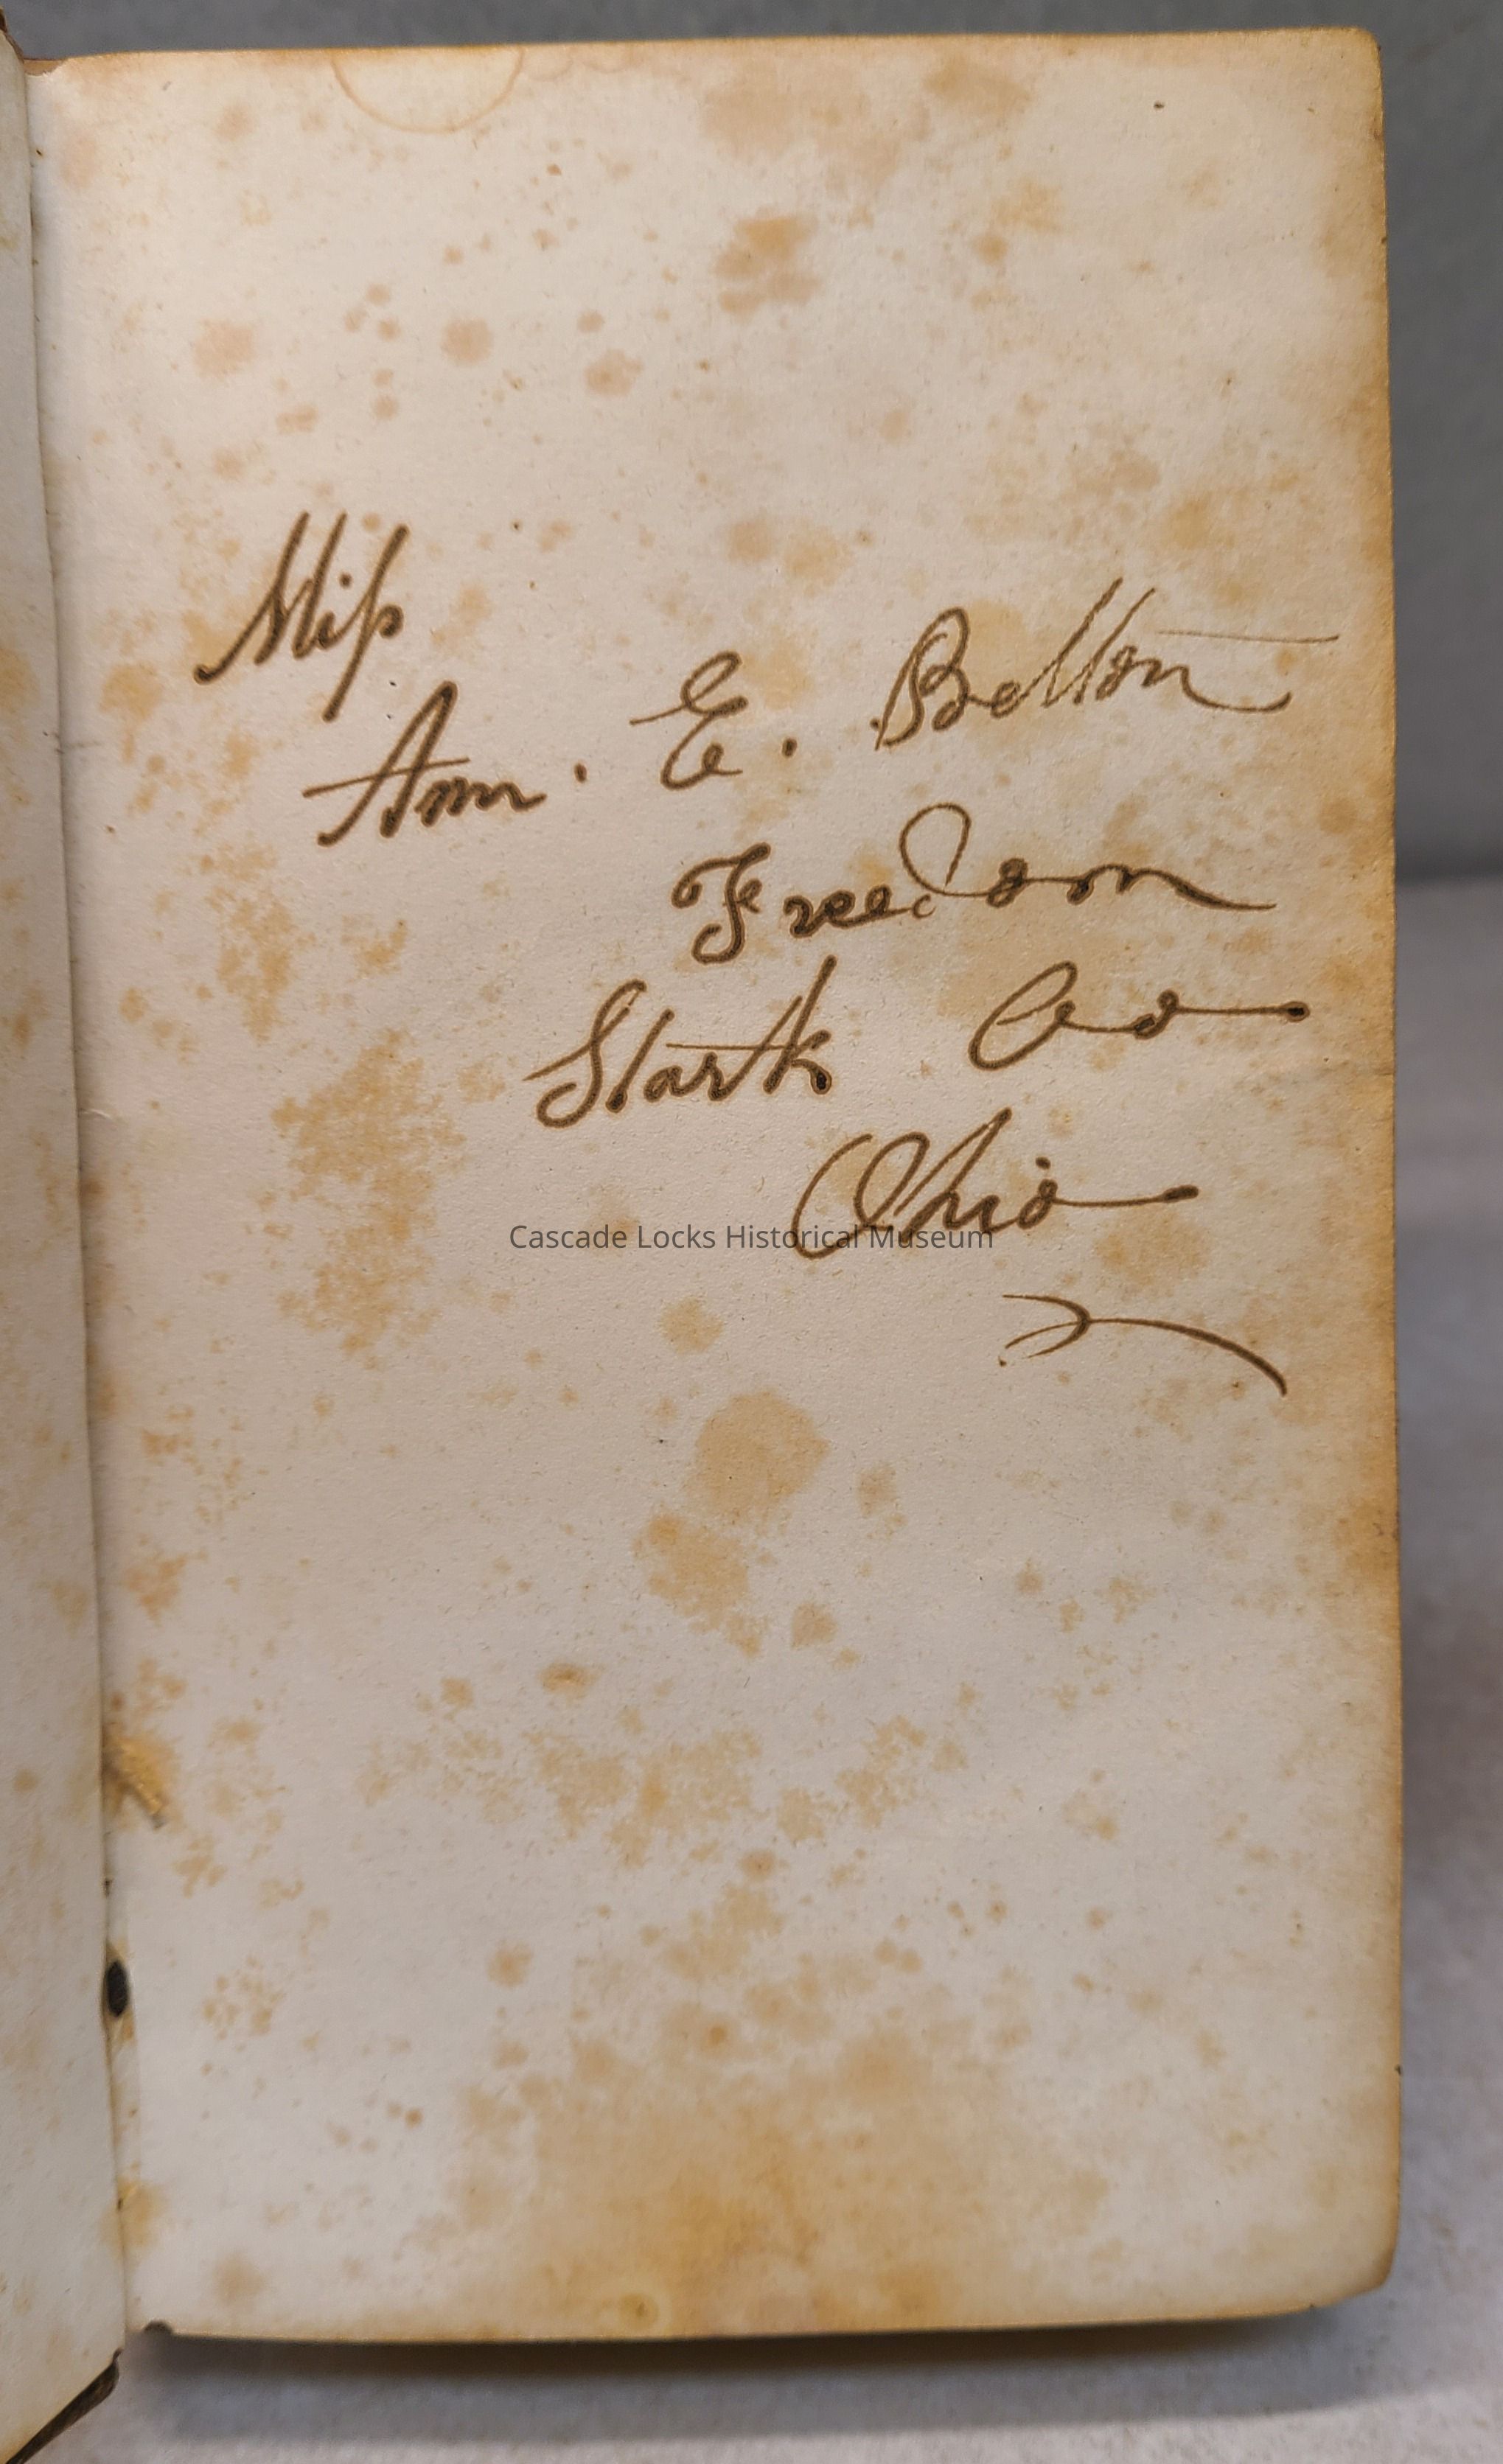 Miſs
Ann. E. Bolton
Freedom
Stark Co
Ohio
Cascade Locks Historical Museum